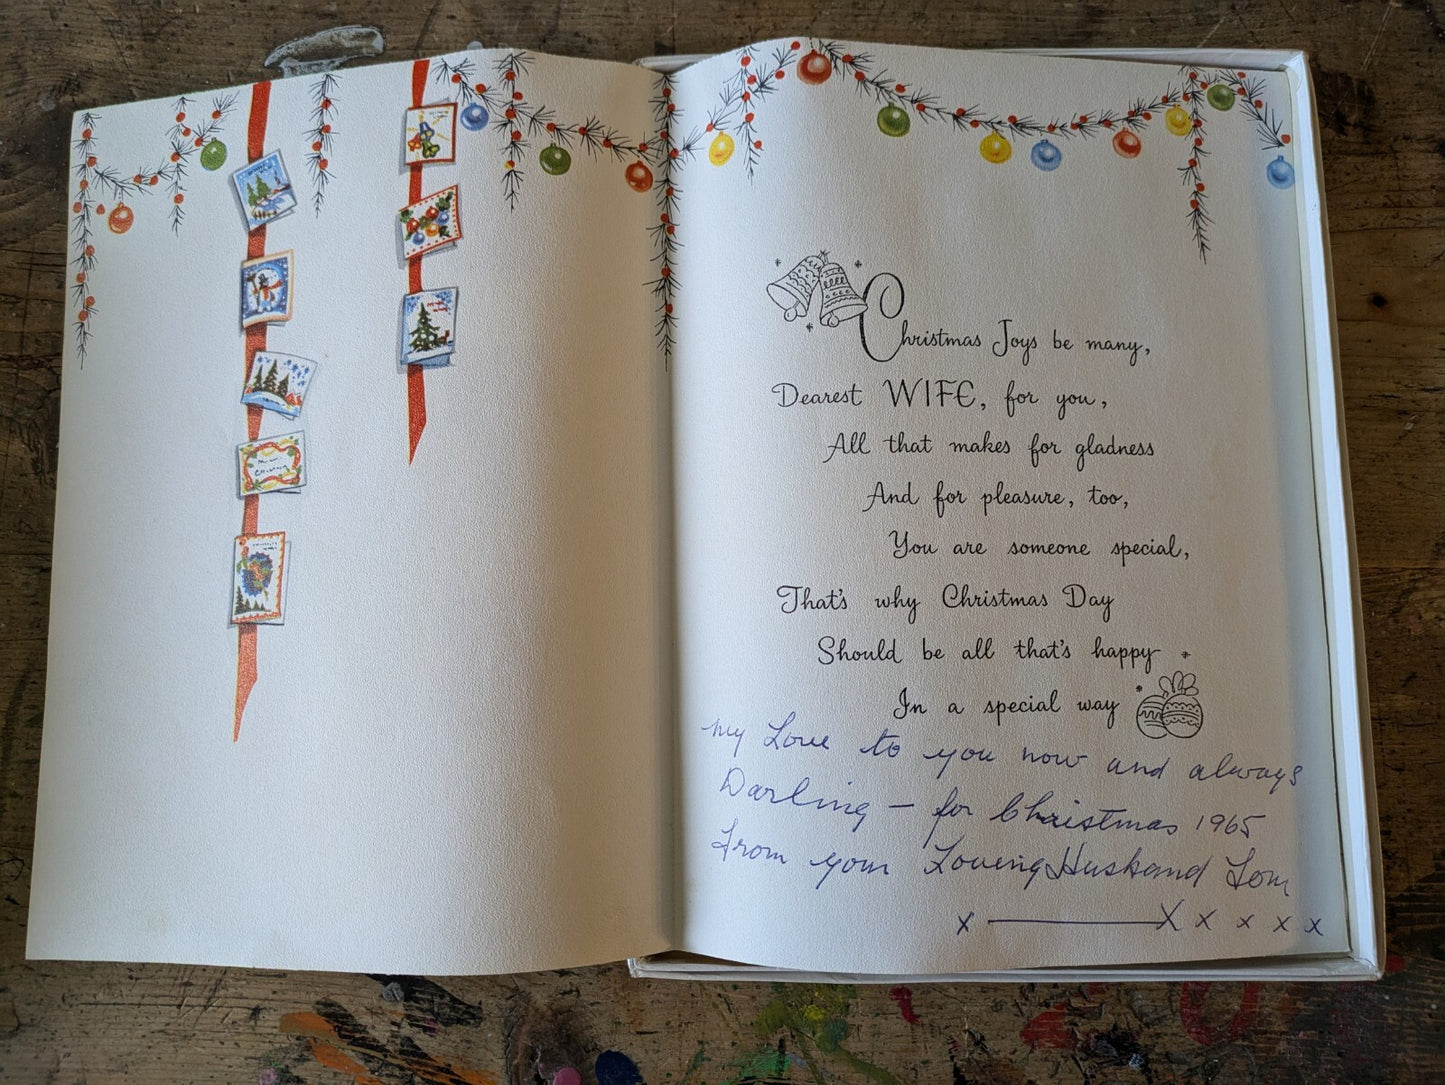 Christmas Joys be many,
Dearest WIFE, for you,
All that makes for gladness
And for pleasure, too,
You are someone special,
That's why Christmas Day
Should be all that's happy
In a special way
my Love to you now and always
Darling — for Christmas 1965
From your Loving Husband Tom
x ———— X x x x x